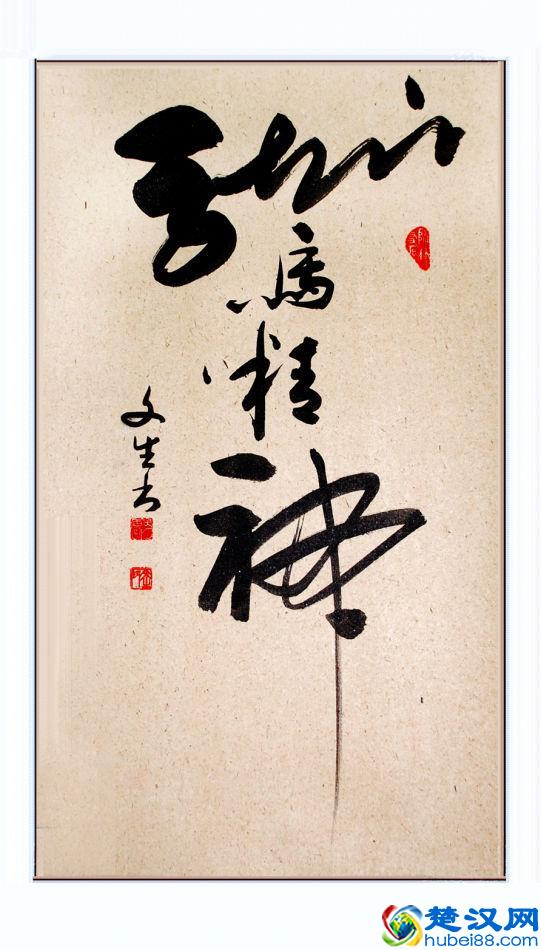 龍馬精神
文生书
楚汉网
hubei88.com